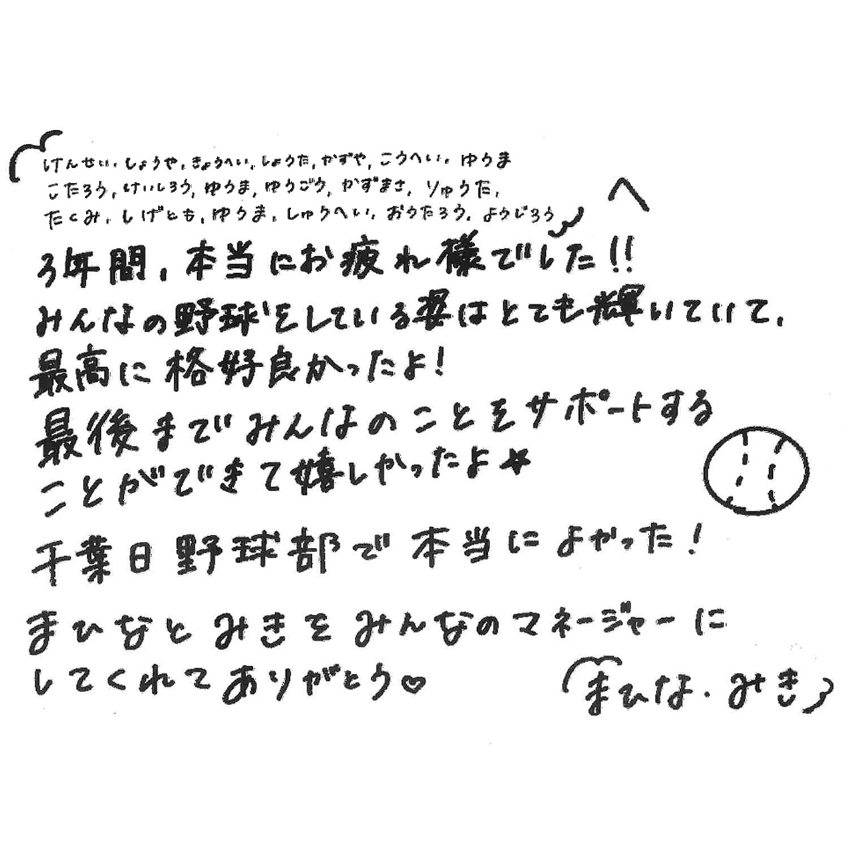 けんせい、しょうや、きょうへい、しょうた、かずや、こうへい、ゆうま
こたろう、けいしろう、ゆうま、ゆうごう、かずまさ、りゅうた、
たくみ、しげとも、ゆうま、しゅうへい、おうたろう、ようじろう
へ
3年間、本当にお疲れ様でした!!
みんなの野球をしている姿はとても輝いていて、
最高に格好良かったよ!
最後までみんなのことをサポートする
ことができて嬉しかったよ★
千葉日野球部で本当によかった!
まひなとみきをみんなのマネージャーに
してくれてありがとう♡
まひな・みき